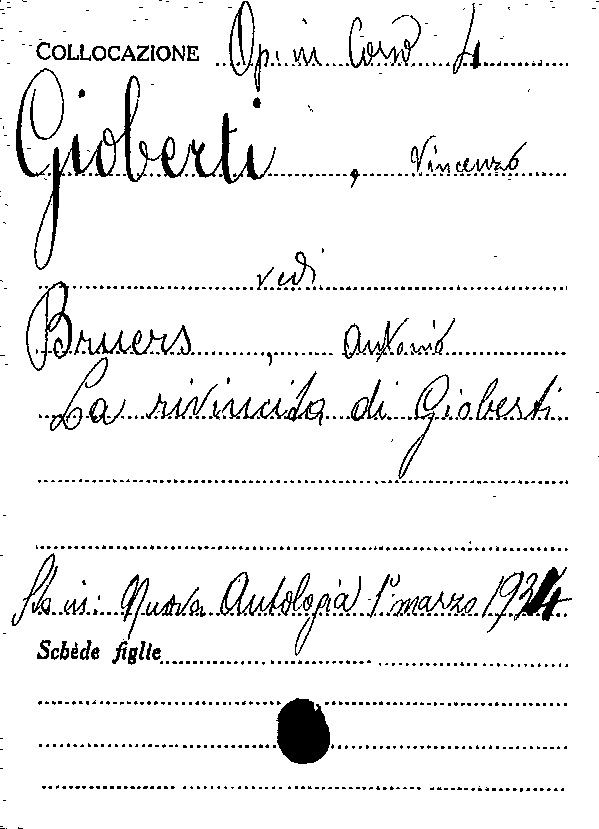 COLLOCAZIONE Op. in Corso 4
Gioberti, Vincenzo
vedi
Bruers, Antonio
La rivincita di Gioberti
Sta in: Nuova Antologia 1° marzo 1934
Schède figlie